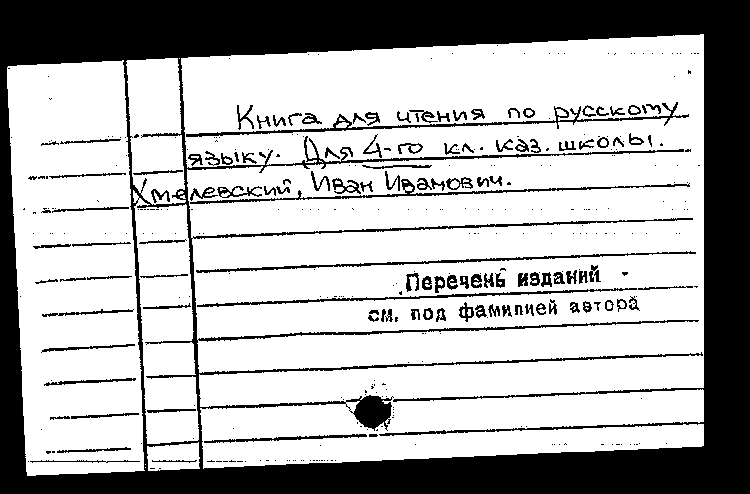 Книга для чтения по русскому
языку. Для 4-го кл. каз. школы.
Хмелевский, Иван Иванович.
Перечень изданий
см. под фамилией автора